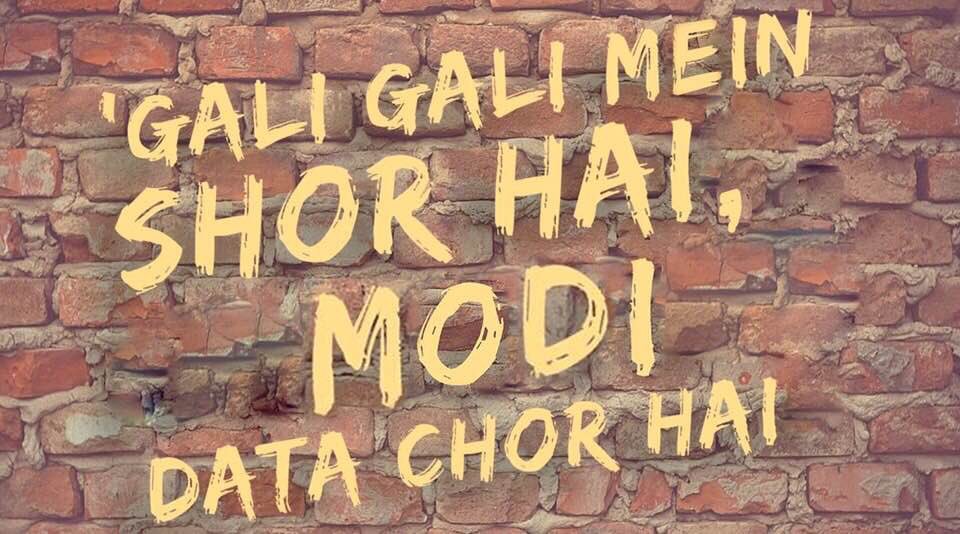 'GALI GALI MEIN
SHOR HAI,
MODI
DATA CHOR HAI